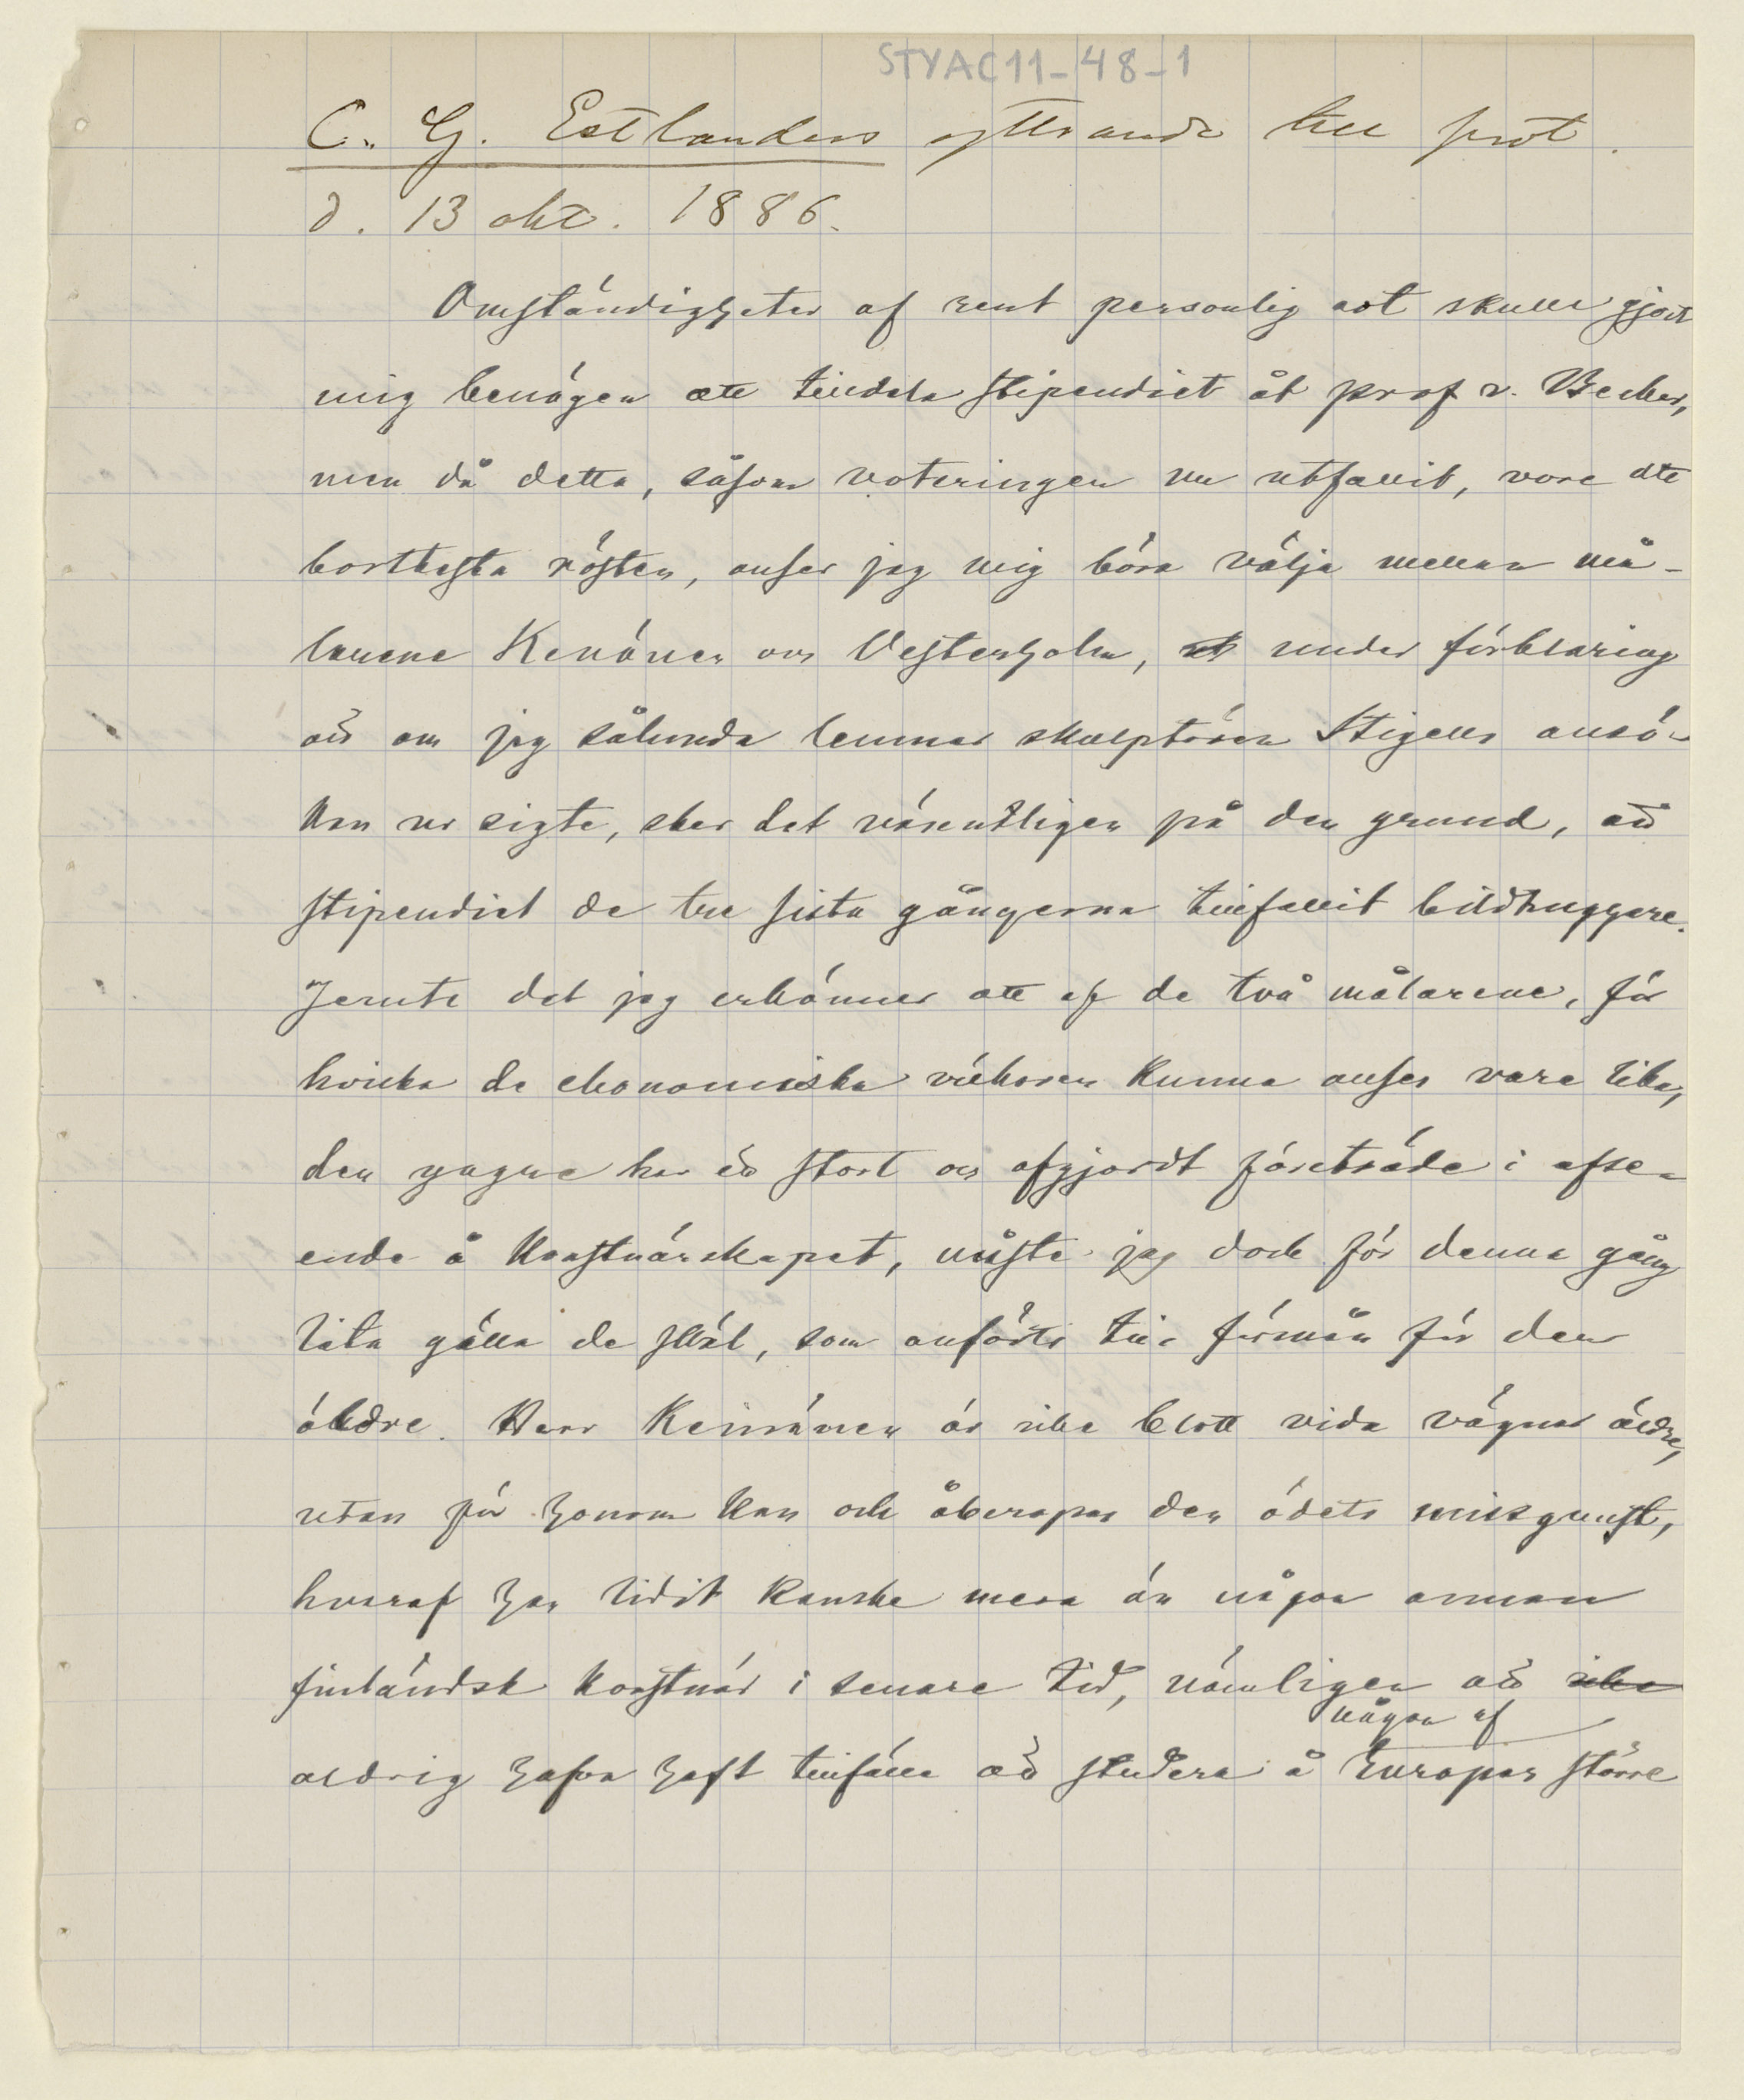 STYAC11-48-1
C. G. Estlanders yttrande till prot.
d. 13 okt. 1886.
Omständigheter af rent personlig art skulle gjort
mig benägen att tilldela stipendiet åt prof v. Becker,
men då detta, såsom voteringen nu utfallit, vore att
bortkasta rösten, anser jag mig böra välja mellan må-
larene Keinänen och Vesterholm, under förklaring
att om jag sålunda lemnar skulptören Stigells ansö-
kan ur sigte, sker det väsendtligen på den grund, att
stipendiet de tre sista gångerna tillfallit bildhuggare.
Jemte det jag erkänner att af de två målarene, för
hvilka de ekonomiska vilkoren kunna anses vara lika,
den yngre har ett stort och afgjordt företräde i afse-
ende å konstnärskapet, måste jag dock för denna gång
låta gälla de skäl, som anförts till förmån för den
äldre. Herr Keinänen är icke blott vida vägnar äldre,
utan för honom kan ock åberopas den ödets missgunst,
hvaraf han lidit kanske mera än någon annan
finländsk konstnär i senare tid, nämligen att icke
någon af
aldrig hafva haft tillfälle att studera å Europas större